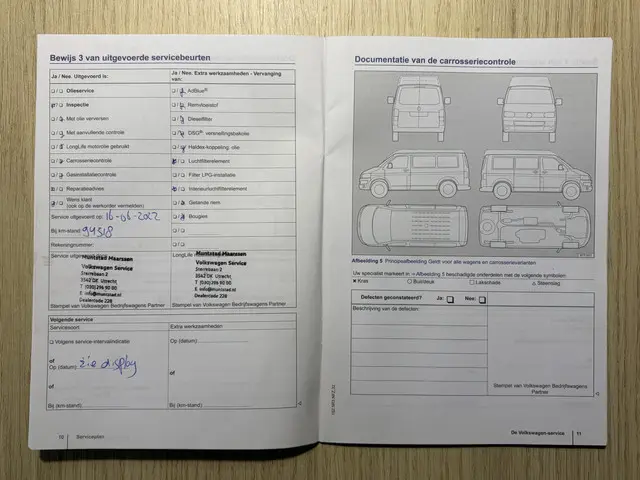 Bewijs 3 van uitgevoerde servicebeurten
Ja / Nee. Uitgevoerd is:
Ja / Nee. Extra werkzaamheden - Vervanging van:
Olieservice
AdBlue®
Inspectie
Remvloeistof
Met olie verversen
Dieselfilter
Met aanvullende controle
DSG® versnellingsbakolie
LongLife motorolie gebruikt
Haldex-koppeling -olie
Carrosseriecontrole
Luchtfilterelement
Gasinstallatiecontrole
Filter LPG-installatie
Reparatieadvies
Interieurluchtfilterelement
Wens klant
(ook op de werkorder vermelden)
Getande riem
Service uitgevoerd op: 16-06-2022
Bougies
Bij km-stand: 94518
Rekeningnummer:
Service uitgevoerd
LongLife
Muntstad Maarssen
Volkswagen Service
Sterrebaan 2
3542 DK Utrecht
T (030)296 90 00
E info@muntstad.nl
Dealercode 228
Muntstad Maarssen
Volkswagen Service
Sterrebaan 2
3542 DK Utrecht
T (030)296 90 00
E info@muntstad.nl
Dealercode 228
Stempel van Volkswagen Bedrijfswagens Partner
Stempel van Volkswagen Bedrijfswagens Partner
Volgende service
Servicesoort
Extra werkzaamheden
Volgens service-intervalindicatie
Op (datum):
of
Op (datum): zie display
of
of
Bij (km-stand):
Bij (km-stand):
10 Serviceplan
Documentatie van de carrosseriecontrole
Afbeelding 5 Principeafbeelding Geldt voor alle wagens en carrosserievarianten
Uw specialist markeert in ⇒ Afbeelding 5 beschadigde onderdelen met de volgende symbolen:
Kras
Buil/deuk
Lakschade
Steenslag
Defecten geconstateerd? Ja: Nee:
Beschrijving van de defecten:
Stempel van Volkswagen Bedrijfswagens
Partner
De Volkswagen-service 11